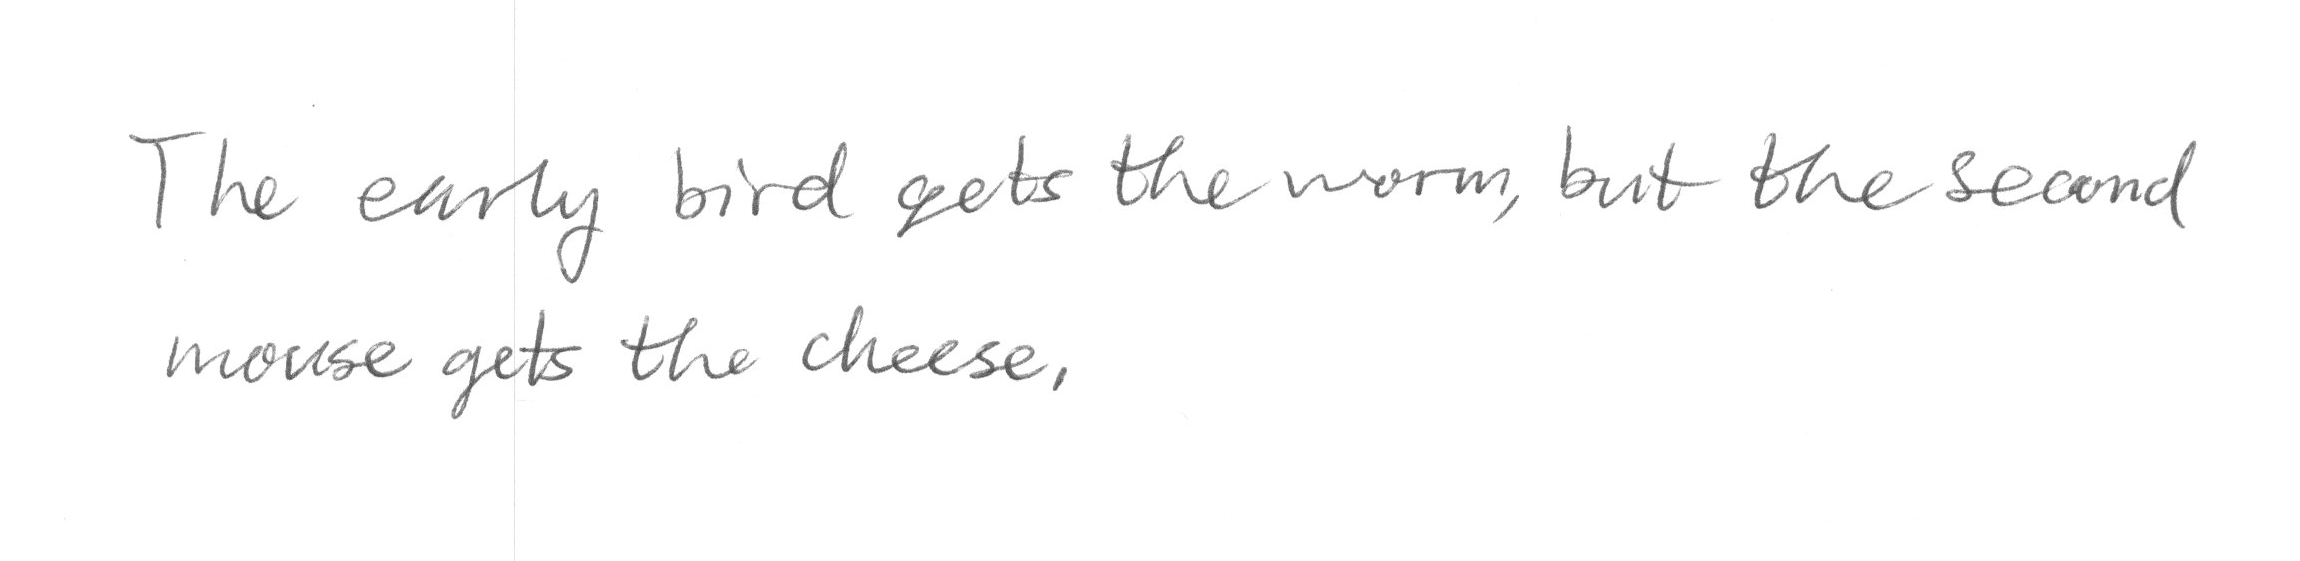 The early bird gets the worm, but the second
mouse gets the cheese,